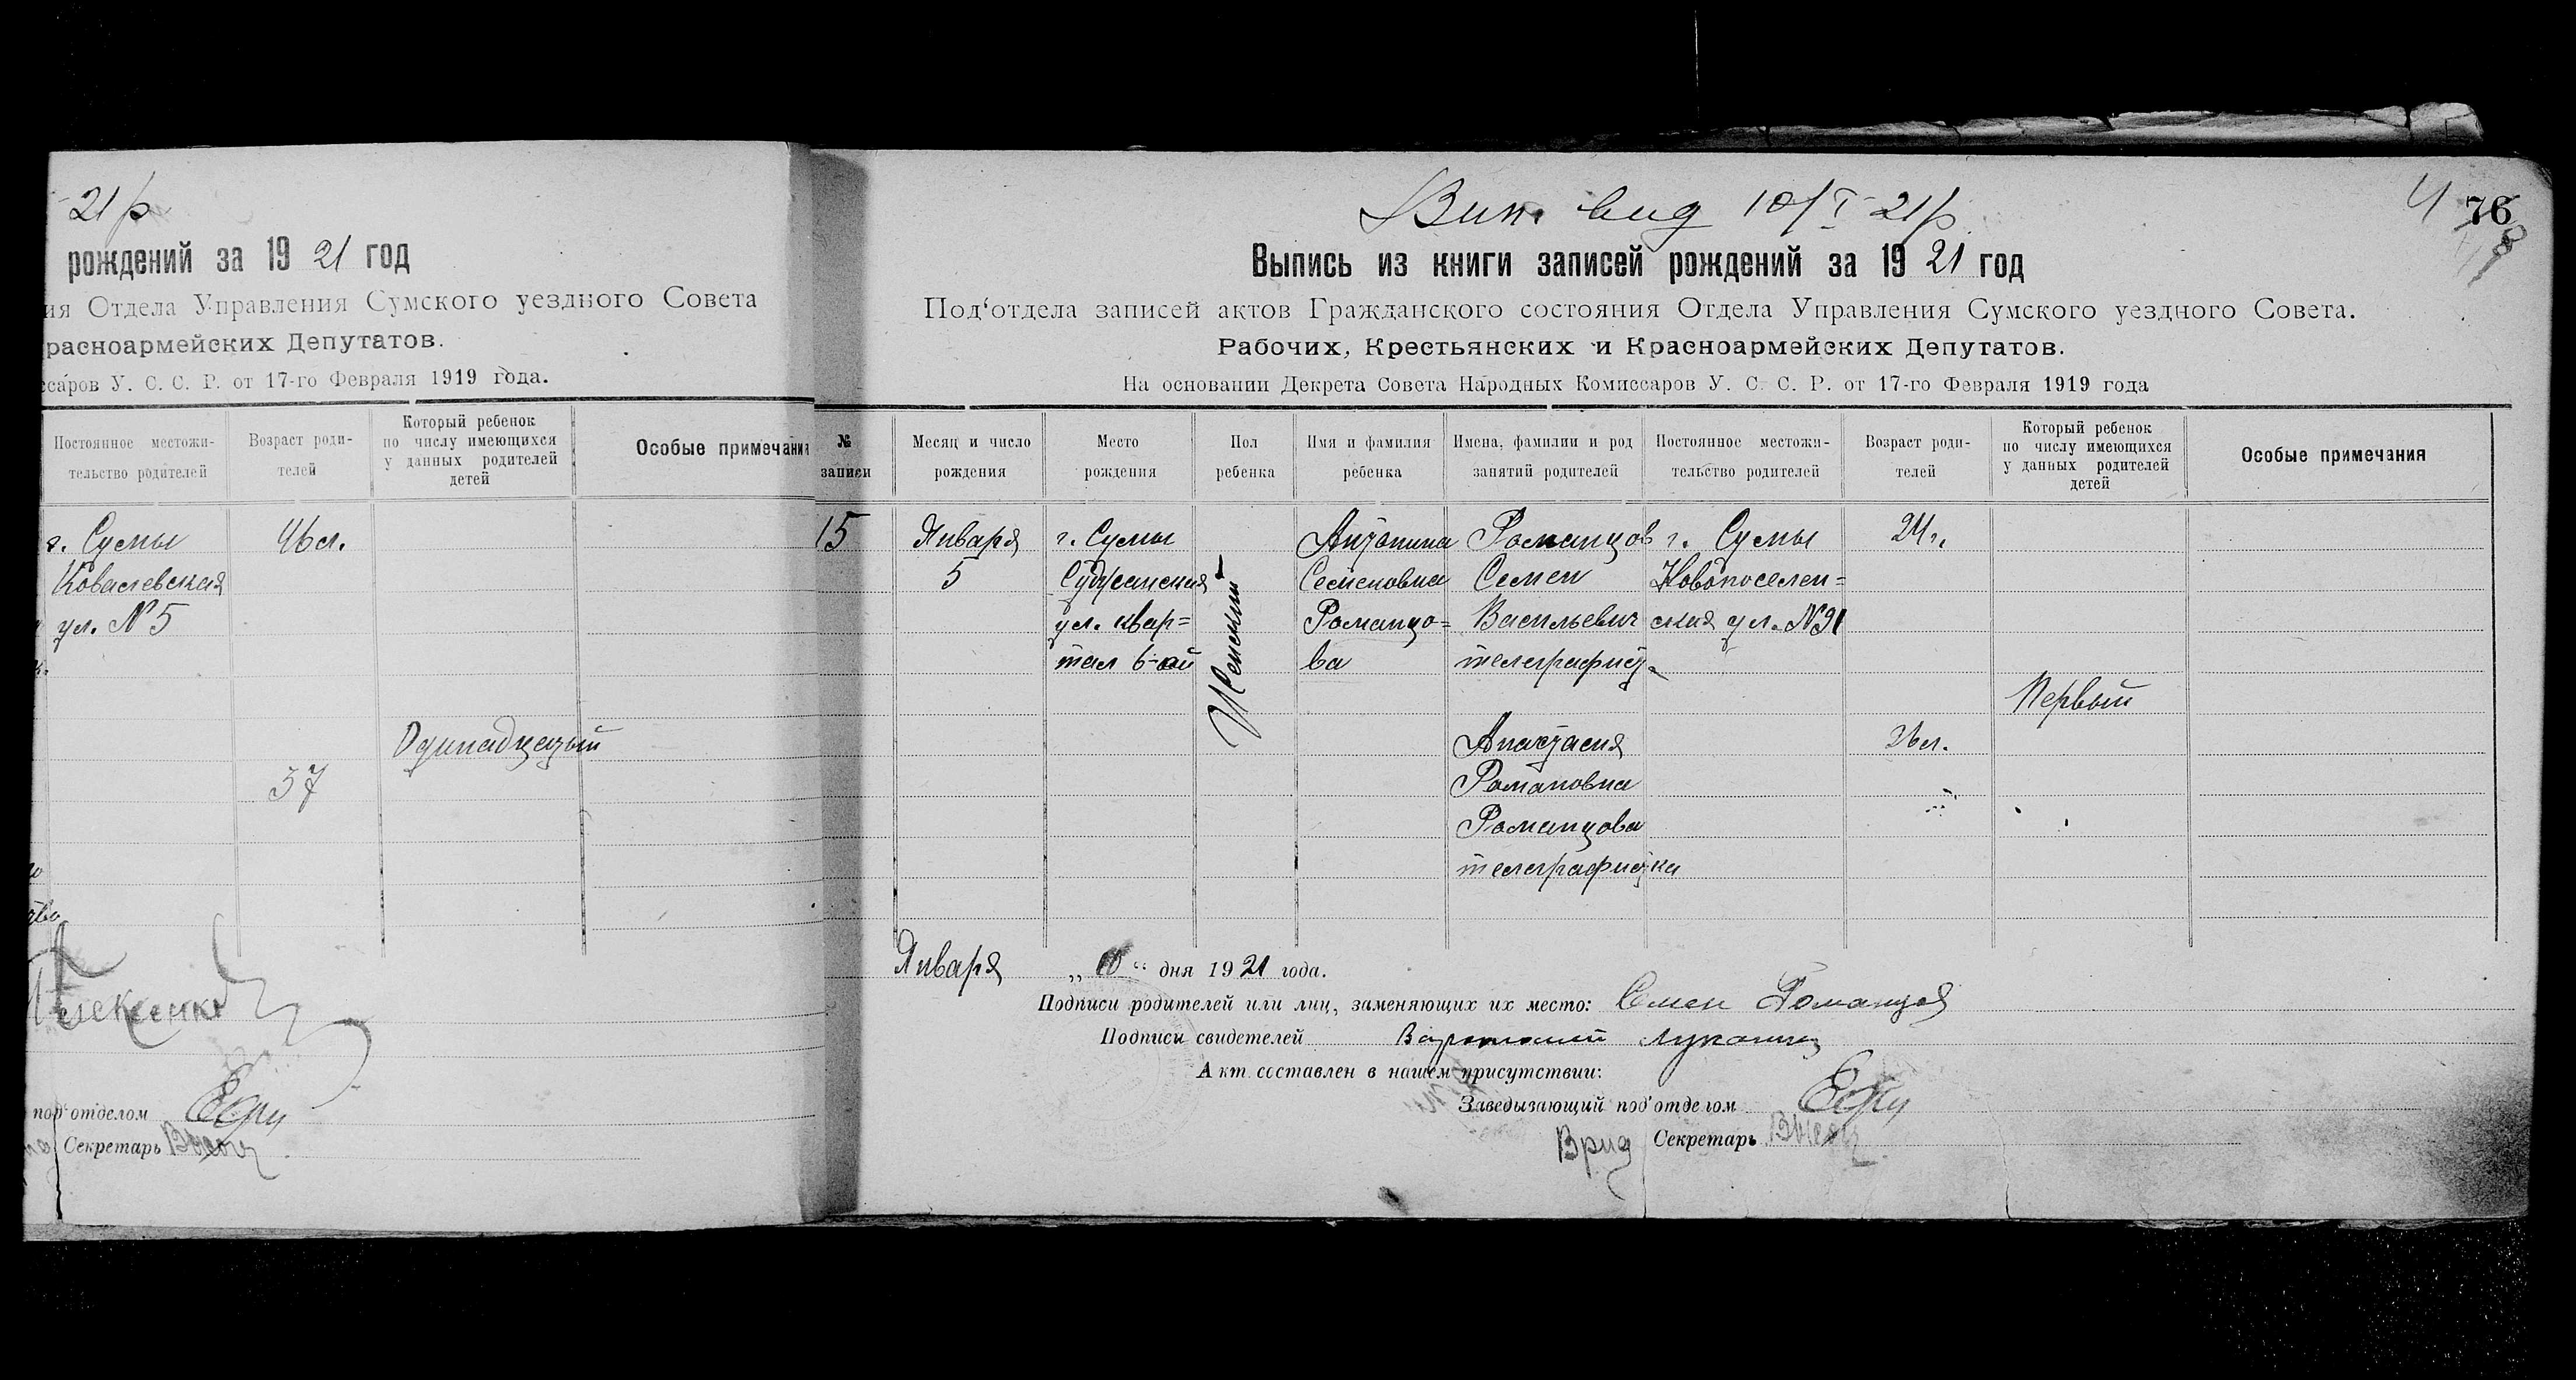 21 р
рождений за 1921 год
ия Отдела Управления Сумского уездного Совета
расноармейских Депутатов.
ссаров У. С. С. Р. от 17-го Февраля 1919 года.
Постоянное местожи-
тельство родителей
Возраст роди-
телей
Который ребенок
по числу имеющихся
у данных родителей
детей
Особые примечания
г. Сумы
Ковалевская
ул. № 5
46 л.
37
Одинадцатый
под'отделом
Секретарь
Вик. вид 10/I 21 р.
4
76
Выпись из книги записей рождений за 1921 год
Под'отдела записей актов Гражданского состояния Отдела Управления Сумского уездного Совета.
Рабочих, Крестьянских и Красноармейских Депутатов.
На основании Декрета Совета Народных Комиссаров У. С. С. Р. от 17-го Февраля 1919 года
№
записи
Месяц и число
рождения
Место
рождения
Пол
ребенка
Имя и фамилия
ребенка
Имена, фамилии и род
занятий родителей
Постоянное местожи-
тельство родителей
Возраст роди-
телей
Который ребенок
по числу имеющихся
у данных родителей
детей
Особые примечания
15
Января
5
г. Сумы
Суджанская
ул. квар=
тал 6-ой
Женский
Антонина
Семеновна
Романцо=
ва
Романцов
Семен
Васильевич
телеграфист
Анастасия
Романовна
Романцова
телеграфистка
г. Сумы
Новопоселен=
ская ул. № 91
24 г.
26 л.
Первый
Января „10“ дня 1921 года.
Подписи родителей или лиц, заменяющих их место: Семен Романцов
Подписи свидетелей
Акт составлен в нашем присутствии:
Заведывающий под'отделом
Врид Секретарь